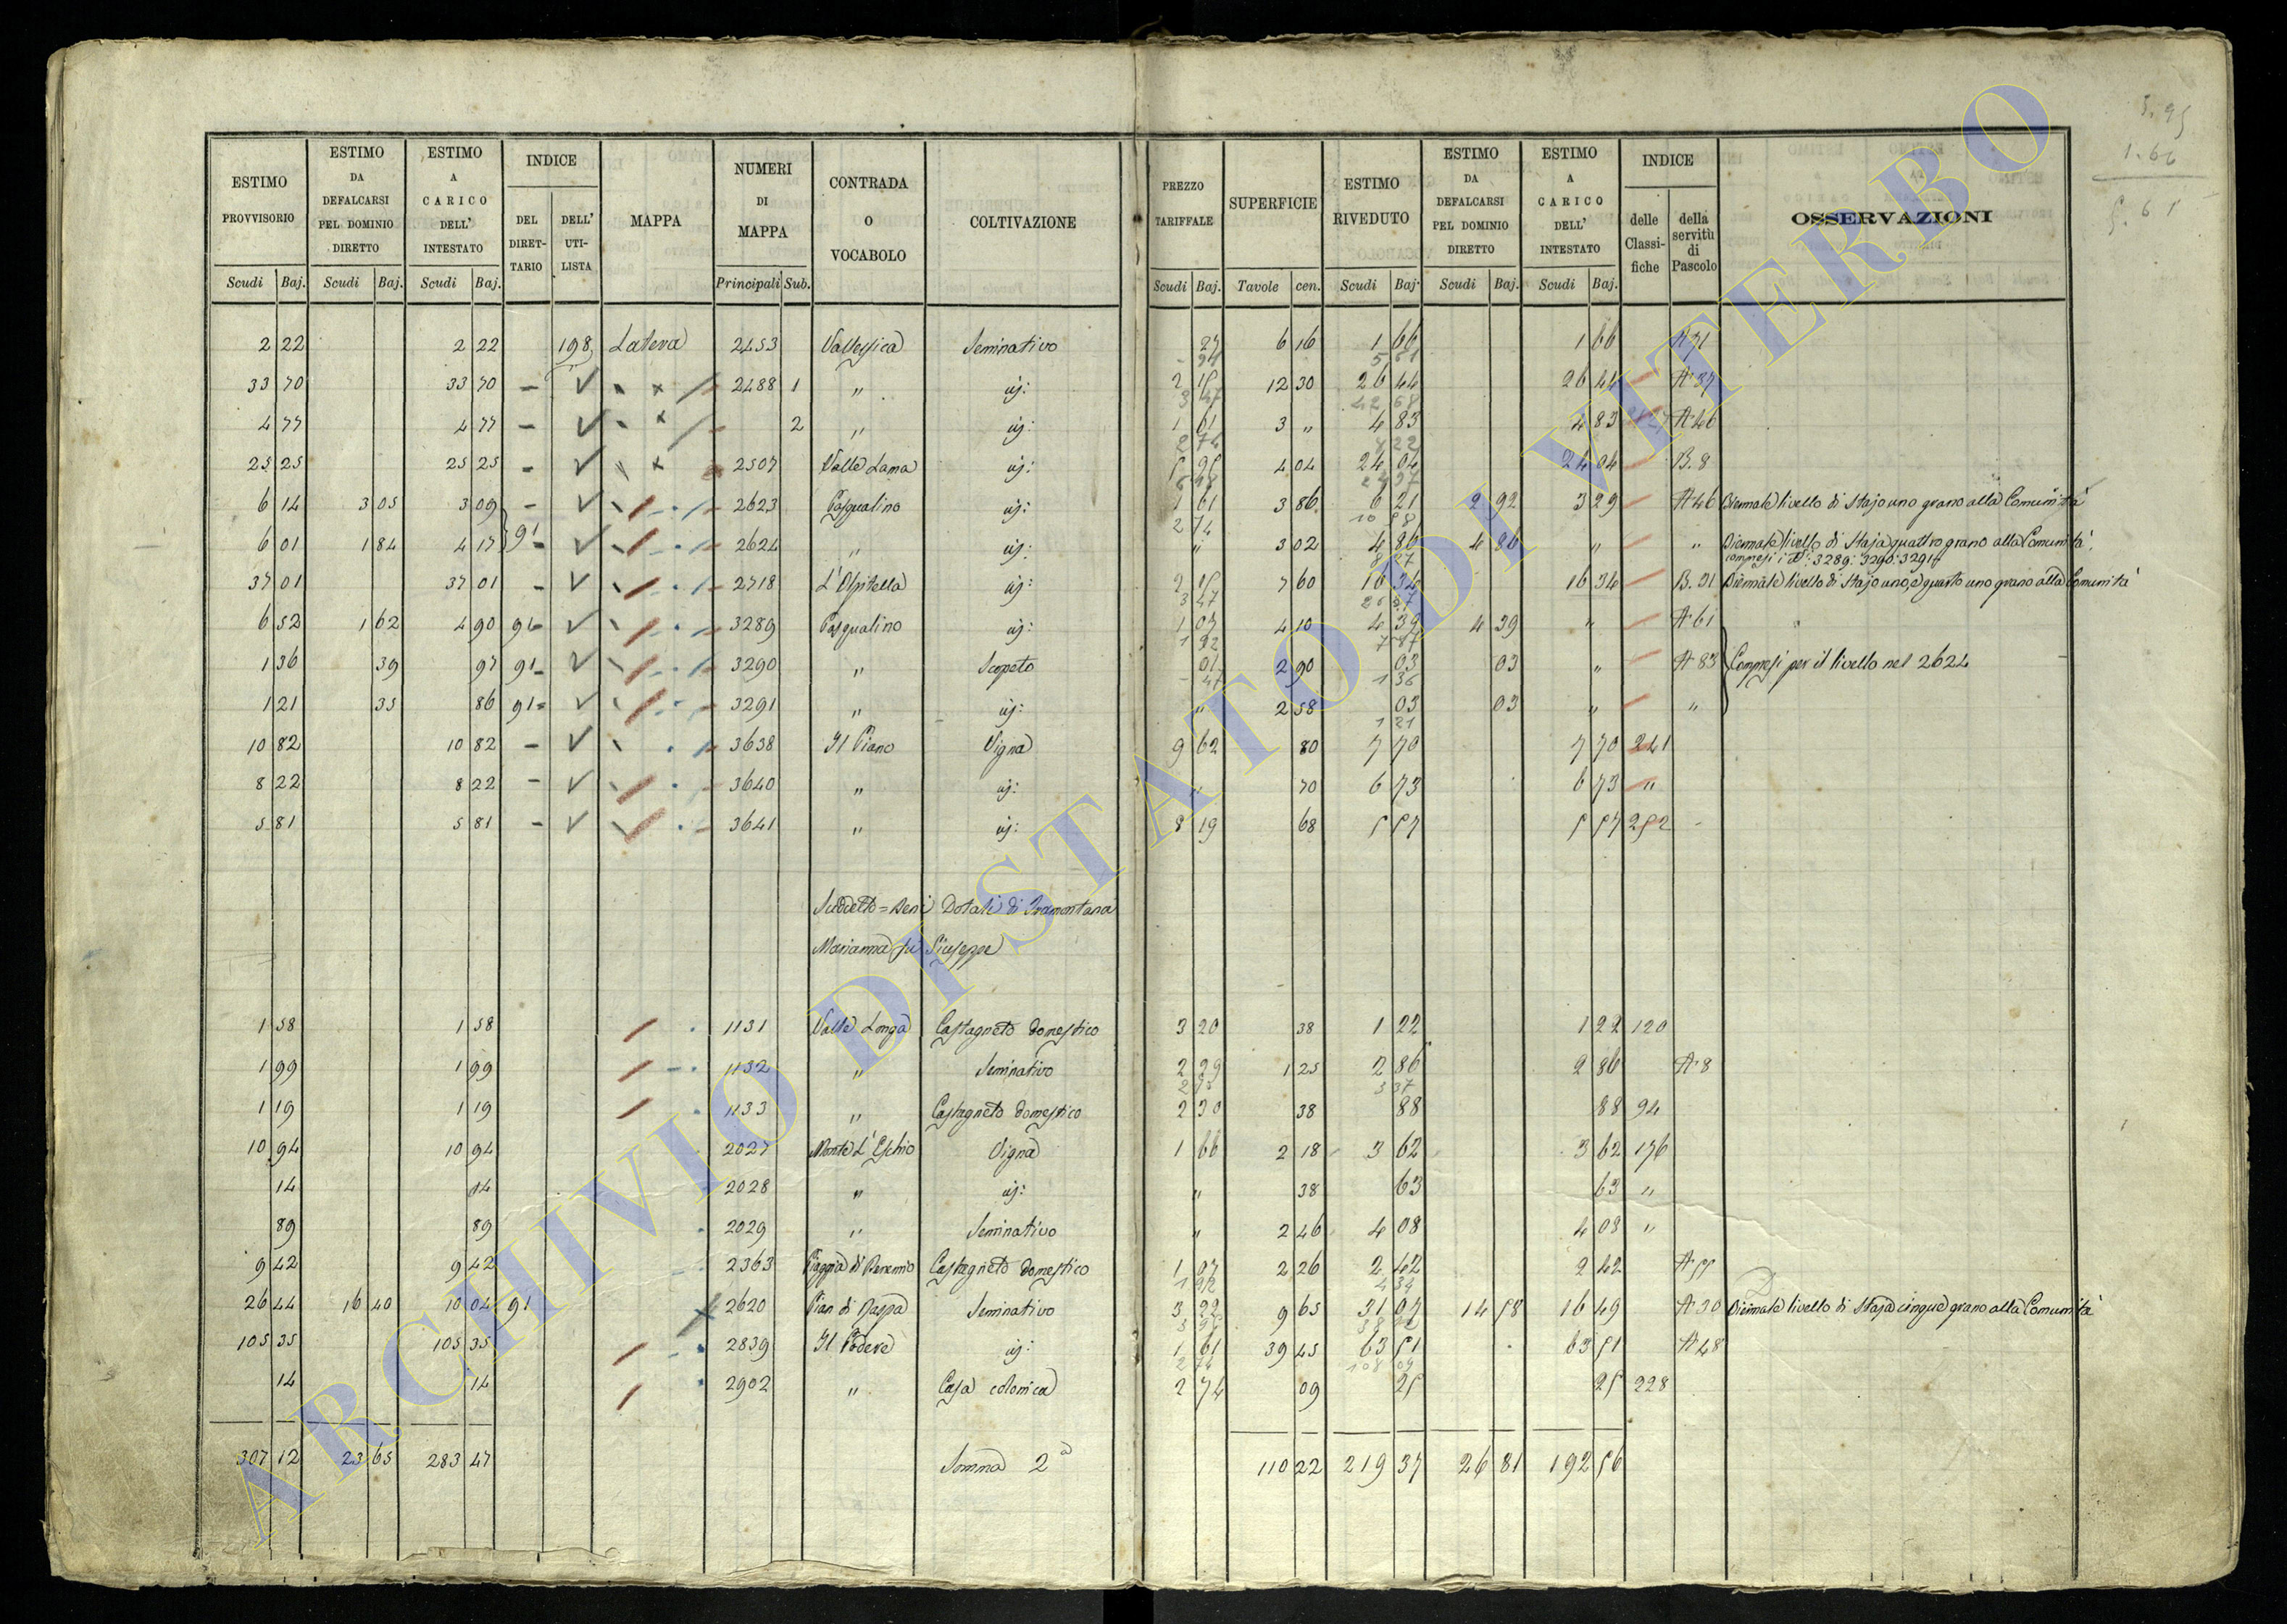 ESTIMO PROVVISORIO | ESTIMO DA DEFALCARSI PEL DOMINIO DIRETTO | ESTIMO A CARICO DELL' INTESTATO | INDICE | MAPPA | NUMERI DI MAPPA | CONTRADA O VOCABOLO | COLTIVAZIONE | PREZZO TARIFFALE | SUPERFICIE | ESTIMO RIVEDUTO | ESTIMO DA DEFALCARSI PEL DOMINIO DIRETTO | ESTIMO A CARICO DELL' INTESTATO | INDICE | OSSERVAZIONI
DEL DIRETTARIO | DELL' UTILISTA | delle Classifiche | della servitù di Pascolo
Scudi | Baj. | Scudi | Baj. | Scudi | Baj. | Principali | Sub. | Scudi | Baj. | Tavole | cen. | Scudi | Baj. | Scudi | Baj. | Scudi | Baj.
2 22 | 2 22 | 198 | Latera | 2453 | Seminativo | 6 16 | 1 66 | 1 66
33 70 | 33 70 | 2488 | 1 | " | id: | 12 30 | 26 44 | 26 44 | A 37
4 77 | 4 77 | 2 | " | id: | 1 61 | 3 " | 4 83 | 4 83 | A 46
25 25 | 25 25 | 2507 | Valle Lama | id: | 5 95 | 4 04 | 24 04 | 24 04 | B. 8
6 14 | 3 05 | 3 09 | 91 | 2623 | Pasqualino | id: | 1 61 | 3 86 | 6 21 | 2 92 | 3 29 | A 46 | Biennale livello di Stajo uno grano alla Comunità
6 01 | 1 84 | 4 17 | 2624 | " | id: | " | 3 02 | 4 86 | 4 86 | " | " | Biennale livello di Staja quattro grano alla Comunità
compresi i N: 3289: 3290: 3291
37 01 | 37 01 | 2718 | L'Ospitella | id: | 2 15 | 7 60 | 16 34 | 16 34 | B. 31 | Biennale livello di Stajo uno, e quarto uno grano alla Comunità
6 52 | 1 62 | 4 90 | 91 | 3289 | Pasqualino | id: | 1 07 | 4 10 | 4 39 | 4 39 | " | A 61
1 36 | 39 | 97 | 91 | 3290 | " | Scopeto | 01 | 2 90 | 03 | 03 | " | A 83 | Compresi per il livello nel 2624
1 21 | 35 | 86 | 91 | 3291 | " | id: | " | 2 58 | 03 | 03 | " | "
10 82 | 10 82 | 3638 | Il Piano | Vigna | 9 62 | 80 | 7 70 | 7 70 | 241
8 22 | 8 22 | 3640 | " | id: | " | 70 | 6 73 | 6 73 | "
5 81 | 5 81 | 3641 | " | id: | 8 19 | 68 | 5 57 | 5 57 | 252
Suddetto = Beni Dotali di Tramontana
Marianna fu Giuseppe
1 58 | 1 58 | 1131 | Valle Longa | Castagneto domestico | 3 20 | 38 | 1 22 | 1 22 | 120
1 99 | 1 99 | 1132 | " | Seminativo | 2 29 | 1 25 | 2 86 | 2 86 | A 8
1 19 | 1 19 | 1133 | " | Castagneto domestico | 2 30 | 38 | 88 | 88 | 94
10 94 | 10 94 | 2027 | Monte L'Eschio | Vigna | 1 66 | 2 18 | 3 62 | 3 62 | 176
14 | 14 | 2028 | " | id: | " | 38 | 63 | 63 | "
89 | 89 | 2029 | " | Seminativo | " | 2 46 | 4 08 | 4 08 | "
9 42 | 9 42 | 2363 | Piaggia di | Castagneto domestico | 1 07 | 2 26 | 2 42 | 2 42 | A 55
26 44 | 16 40 | 10 04 | 91 | 2620 | Pian di | Seminativo | 3 22 | 9 65 | 31 07 | 14 58 | 16 49 | A 30 | Biennale livello di Staja cinque grano alla Comunità
105 35 | 105 35 | 2839 | Il Podere | id: | 1 61 | 39 45 | 63 51 | 63 51 | A 48
14 | 14 | 2902 | " | Casa colonica | 2 74 | 09 | 25 | 25 | 228
307 12 | 23 65 | 283 47 | Somma 2ª | 110 22 | 219 37 | 26 81 | 192 56
ARCHIVIO DI STATO DI VITERBO